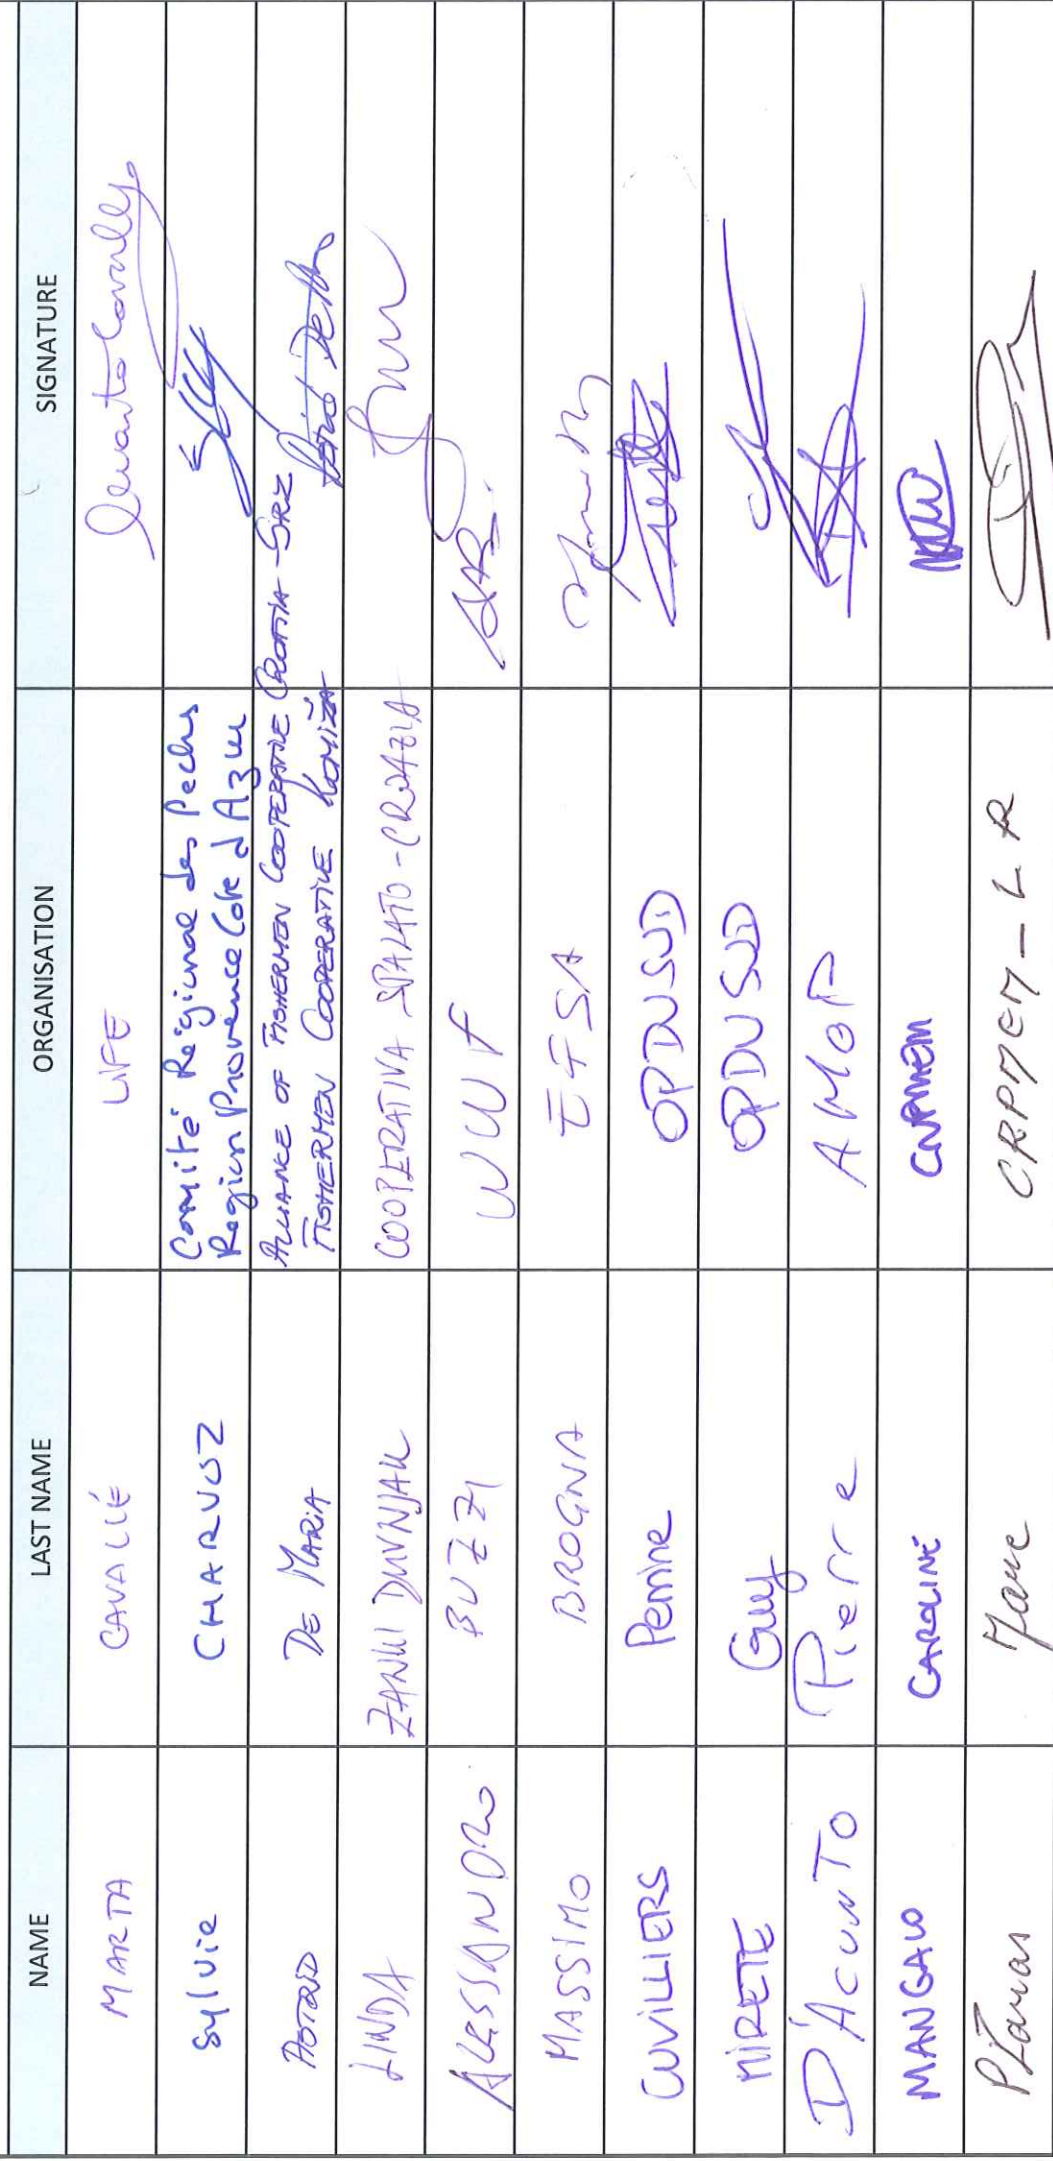 NAME LAST NAME ORGANISATION SIGNATURE
MARTA CAVALLÉ LIFE
Sylvie CHARVOZ Comité Régional des Peches
Region Provence Cote d Azur
DE MARIA ALLIANCE OF FISHERMEN COOPERATIVE CROATIA - SRZ
FISHERMEN COOPERATIVE KOMIŽA
LINDA ZANKI DUVNJAK COOPERATIVA SPALATO - CROAZIA
ALESSANDRO BUZZI WWF
MASSIMO BROGNA EFSA
CUVILLIERS Perrine OPDUSUD
MIRETTE Guy OPDUSUD
D'ACUNTO Pierre AMOP
MANGALO CAROLINE CNPMEM
PLanas Manu CRPMEM - LR